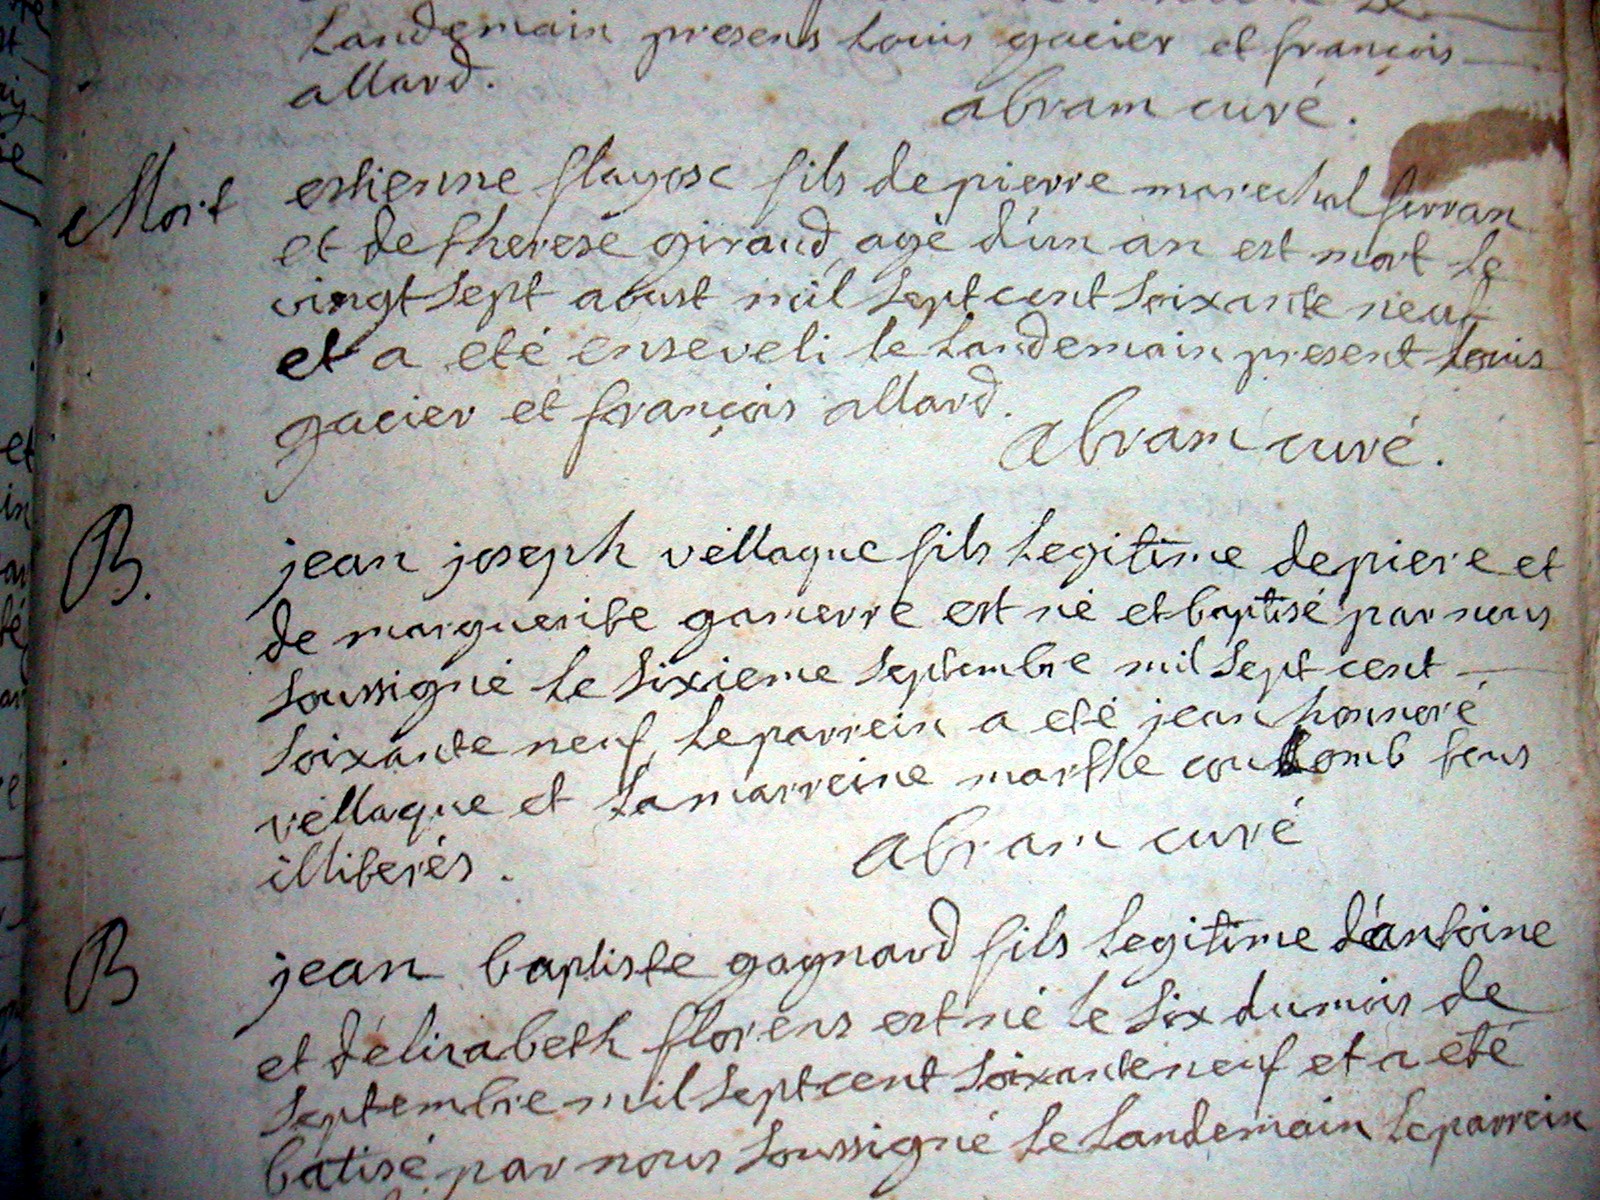 Landemain presens Louis gacier et françois
allard.
abram curé.
Mort estienne flayosc fils de pierre marechal ferran
et de therese giraud, agé d'un an est mort le
vingt Sept aoust mil Sept cent Soixante neuf
et a eté enseveli le Landemain present Louis
gacier et françois allard.
abram curé.
B. jean joseph vellaque fils Legitime de piere et
de marguerite est né et baptisé par nous
Soussigné le Sixieme Septembre mil Sept cent
Soixante neuf, Le parrein a eté jean honnoré
vellaque et La marreine marthe coulomb tous
illiterés.
abram curé
B jean baptiste gagnard fils Legitime d'antoine
et d'élisabeth florens est né le Six du mois de
Septembre mil Sept cent Soixante neuf et a eté
batisé par nous Soussigné Le Landemain Le parrein